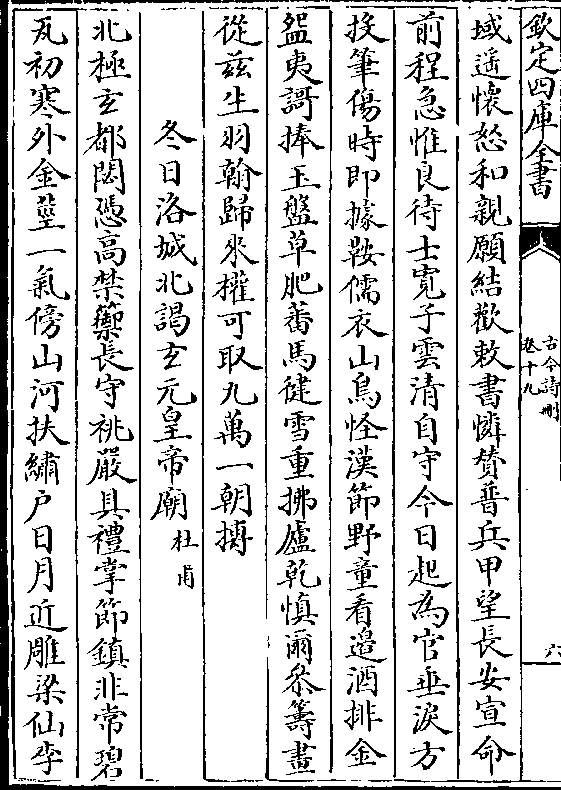 欽定四庫全書
古今詩刪
卷十九
六
域遥懐怒和親願結歡敕書憐賛普兵甲望長安宣命
前程急惟良待士寛子雲清自守今日起為官垂淚方
投筆傷時即據鞍儒衣山鳥怪漢節野童看邉酒排金
盌夷謌捧玉盤草肥蕃馬健雪重拂廬乾慎爾叅籌畫
從兹生羽翰歸來權可取九萬一朝摶
冬日洛城北謁玄元皇帝廟杜甫
北極玄都閟憑髙禁籞長守祧嚴具禮掌節鎮非常碧
瓦初寒外金莖一氣傍山河扶繡户日月近雕梁仙李